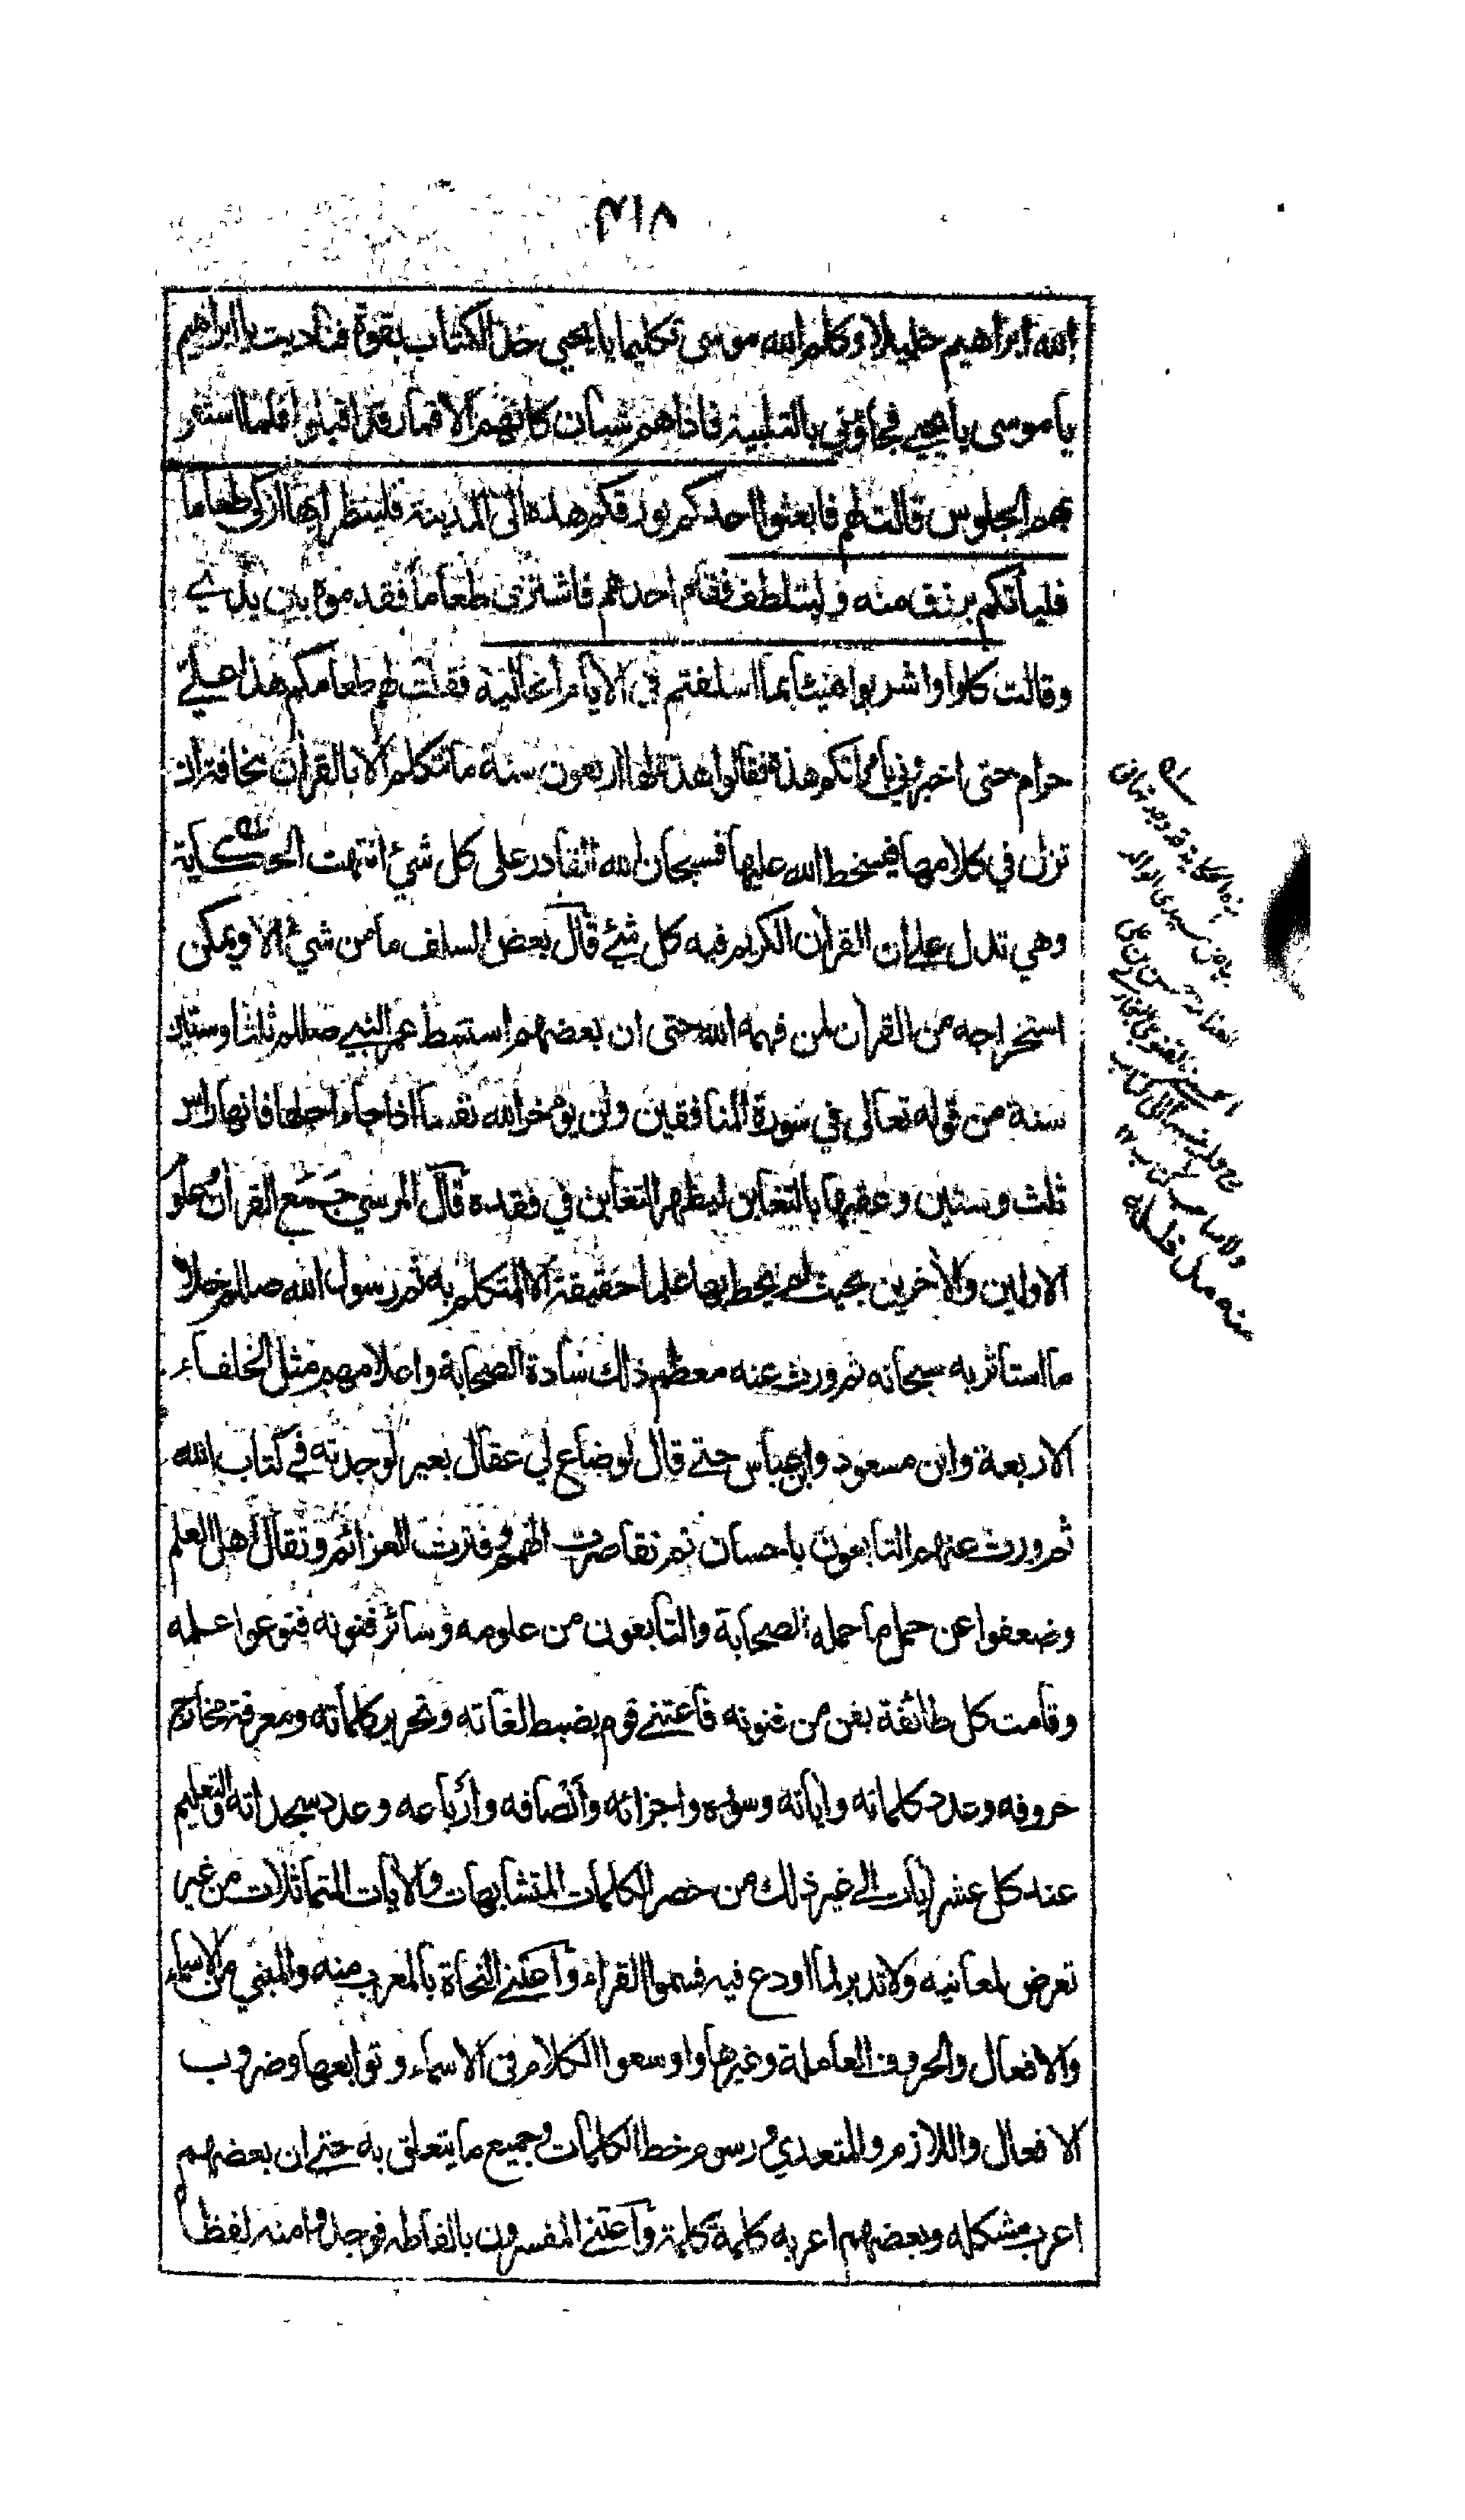 ٣١٨
الله ابراهيم خليلا وكلم الله موسى تكليما يا يحيى خذ الكتاب بقوة فناديت يا ابراهيم
يا موسى يا يحيى فجاؤني بالتلبية فاذاهم شبان كانهم الاقمار قد اقبلوا فلما استقر
بهم الجلوس قالت لهم فابعثوا احدكم بورقكم هذه الى المدينة فلينظر ايها ازكى طعاما
فلياتكم برزق منه وليتلطف فقام احدهم فاشترى طعاما فقدموه بين يدي
وقالت كلوا واشربوا هنيئا بما اسلفتم في الايام الخالية فقلت لهم طعامكم هذا علي
حرام حتى اخبروني بامراتكم هذه فقالوا هذه لها اربعون سنة ما تتكلم الا بالقرآن مخافة ان
تزل في كلامها فيسخط الله عليها فسبحان الله القادر على كل شيء انتهت الحكاية
وهي تدل على ان القران الكريم فيه كل شئ قال بعض السلف ما من شيء الا ويمكن
استخراجه من القران لمن فهمه الله حتى ان بعضهم استنبط عمر النبي صللم ثلثا وستين
سنة من قوله تعالى في سورة المنافقين ولن يؤخر الله نفسا اذا جاء اجلها فانها راس
ثلث وستين وعقبها بالتغابن ليظهر التغابن في فقده قال المرسي جمع القران علوم
الاولين والآخرين بحيث لم يحط بها علما حقيقة الا المتكلم به ثم رسول الله صللم خلا
ما استاثر به سبحانه ثم ورث عنه معظم ذلك سادة الصحابة واعلامهم مثل الخلفاء
الاربعة وابن مسعود وابن عباس حتى قال لو ضاع لي عقال بعير لوجدته في كتاب الله
ثم ورث عنهم التابعون باحسان ثم تقاصرت الهمم وفترت العزائم وتقال اهل العلم
وضعفوا عن حمل ما حمله الصحابة والتابعون من علومه وسائر فنونه فنوعوا علمه
وقامت كل طائفة بفن من فنونه فاعتنى قوم بضبط لغاته وتحرير كلماته ومعرفة مخارج
حروفه وعدد كلماته واياته وسوره واجزائه وانصافه وارباعه وعدد سجداته والتعليم
عند كل عشر ايات الى غير ذلك من حصر الكلمات المتشابهات والايات المتماثلات من غير
تعرض لمعانيه ولا تدبر لما اودع فيه فسموا القراء واعتنى النحاة بالمعرب منه والمبني من الاسماء
والافعال والحروف العاملة وغيرها واوسعوا الكلام في الاسماء وتوابعها وضروب
الافعال واللازم والمتعدي ورسوم خط الكلمات وجميع ما يتعلق به حتى ان بعضهم
اعرب مشكله وبعضهم اعربه كلمة كلمة واعتنى المفسرون بالفاظه فوجدوا منه لفظا